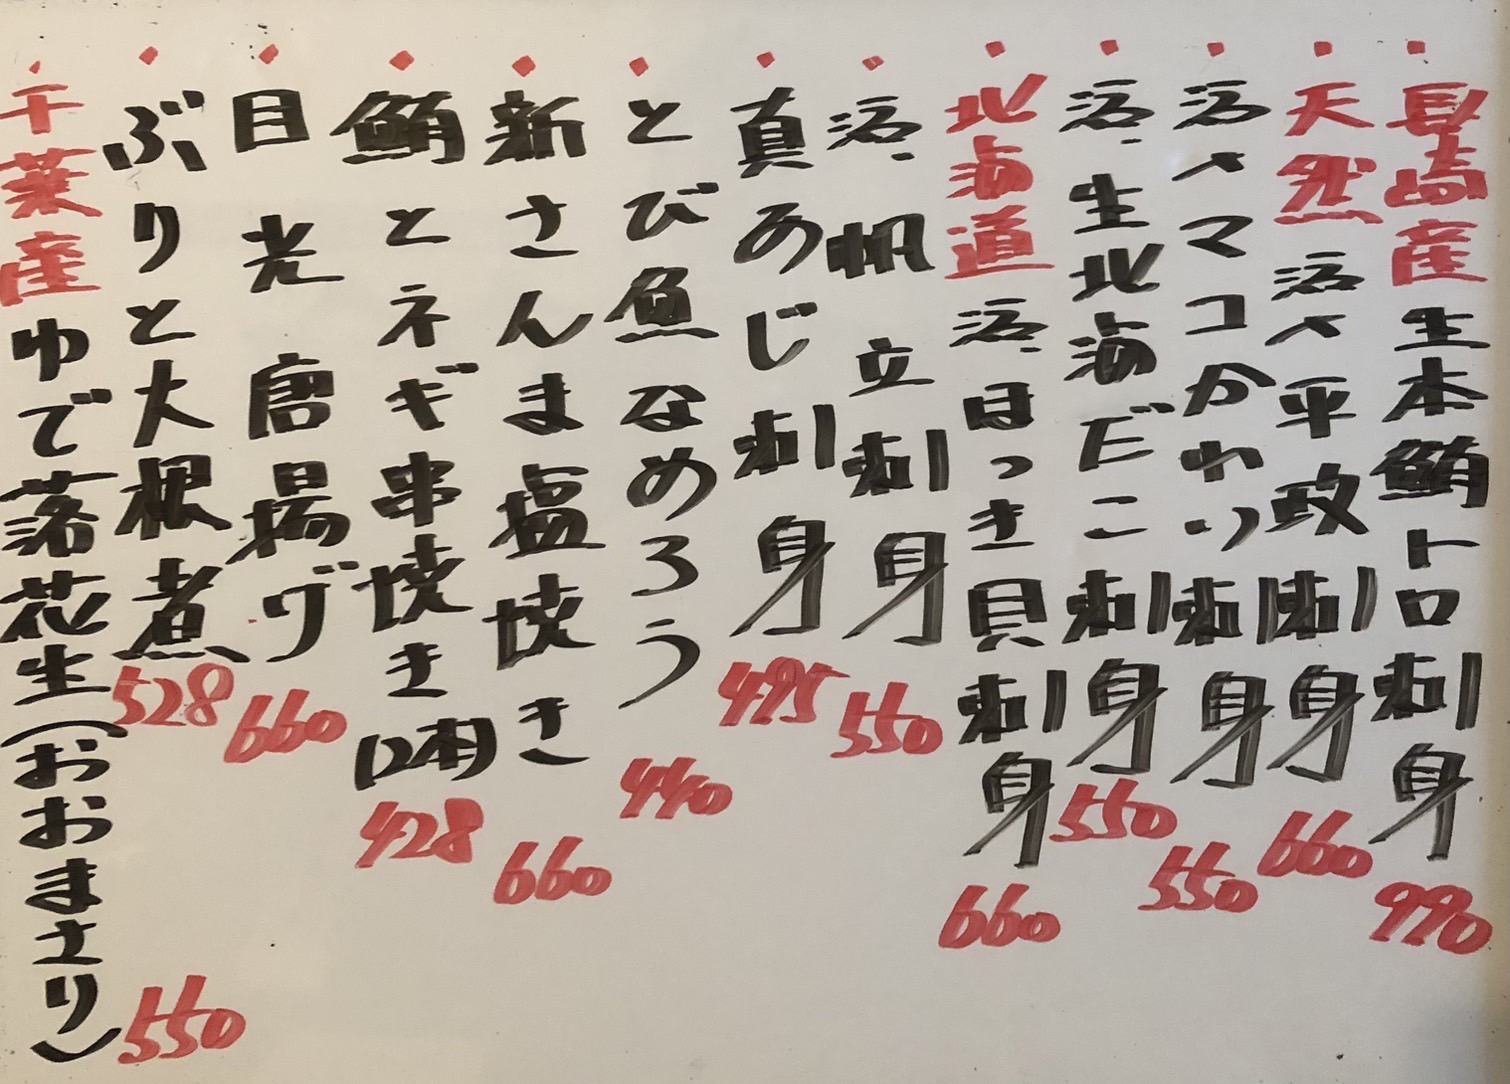 長崎産生本鮪トロ刺身 990
天然活〆平政刺身 660
活〆マコかれい刺身 550
活、生北海だこ刺身 550
北海道活、ほっき貝刺身 660
活、帆立刺身 550
真あじ刺身 495
とび魚なめろう 440
新さんま塩焼き 660
鮪とネギ串焼き(2本) 428
目光唐揚げ 660
ぶりと大根煮 528
千葉産ゆで落花生(おおまさり) 550